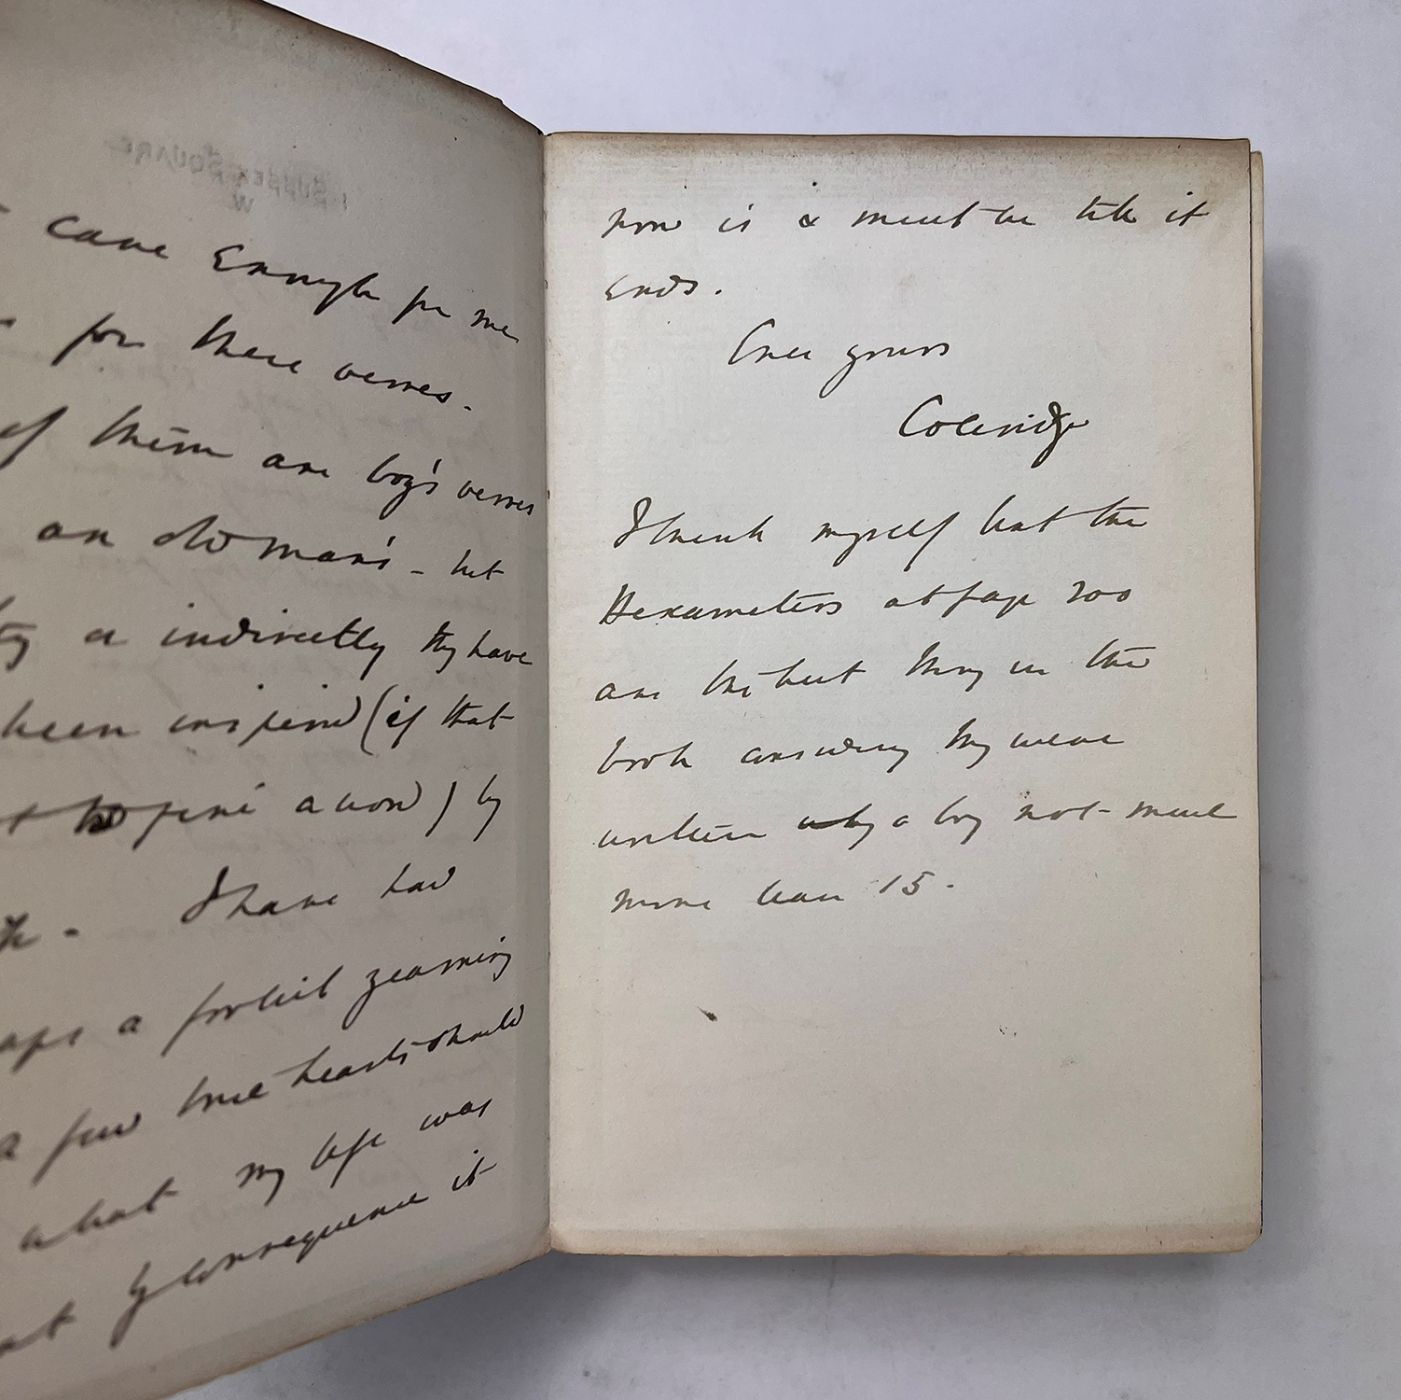 1 SUSSEX SQUARE
W
care Enough for me
for these verses.
of them are boy's verses
an old man's - but
or indirectly they have
been inspired (if that
a word) by
I have had
a foolish yearning
a few true hearts should
what my life was
by consequence it
now is & must be till it
ends.
Ever yours
Coleridge
I think myself that the
Hexameters at page 200
are the best thing in the
book considering they were
written by a boy not much
more than 15.